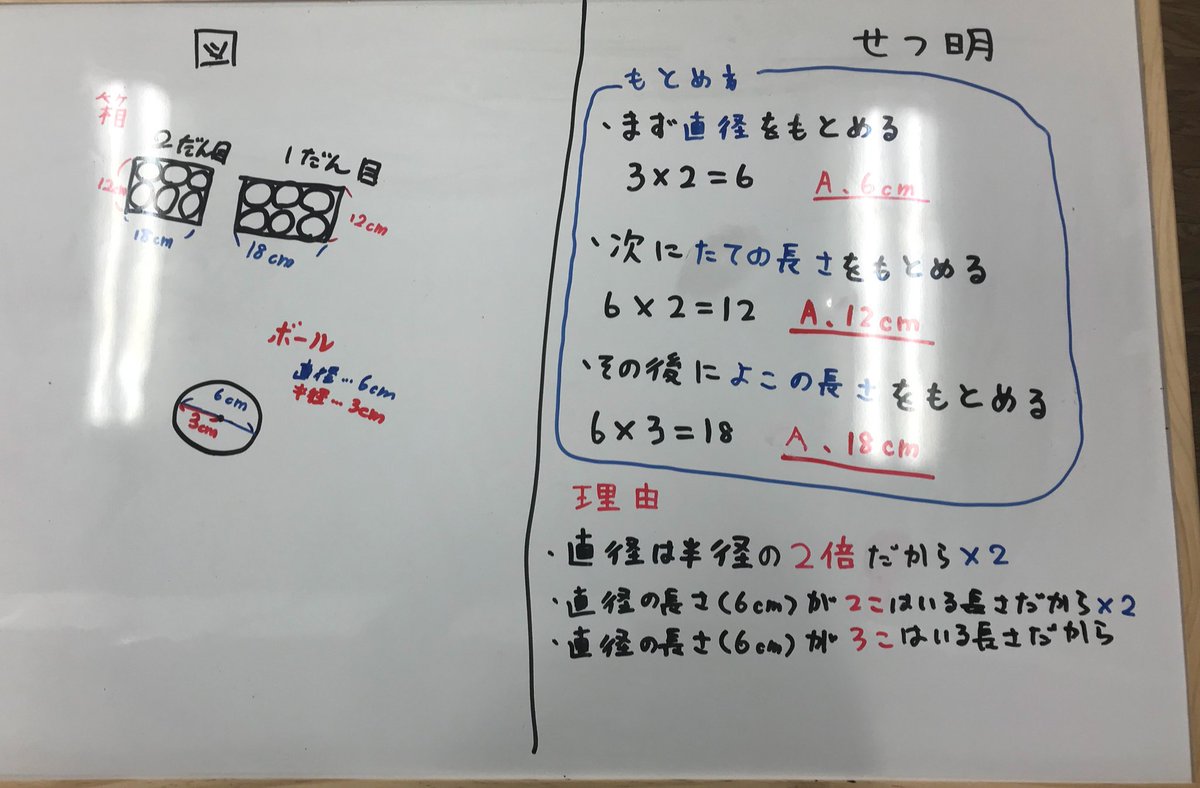 図
箱
2だん目
12cm
18cm
1だん目
12cm
18cm
ボール
直径…6cm
半径…3cm
6cm
3cm
せつ明
もとめ方
・まず直径をもとめる
3×2=6 A、6cm
・次にたての長さをもとめる
6×2=12 A、12cm
・その後によこの長さをもとめる
6×3=18 A、18cm
理由
・直径は半径の2倍だから×2
・直径の長さ(6cm)が2こはいる長さだから×2
・直径の長さ(6cm)が3こはいる長さだから